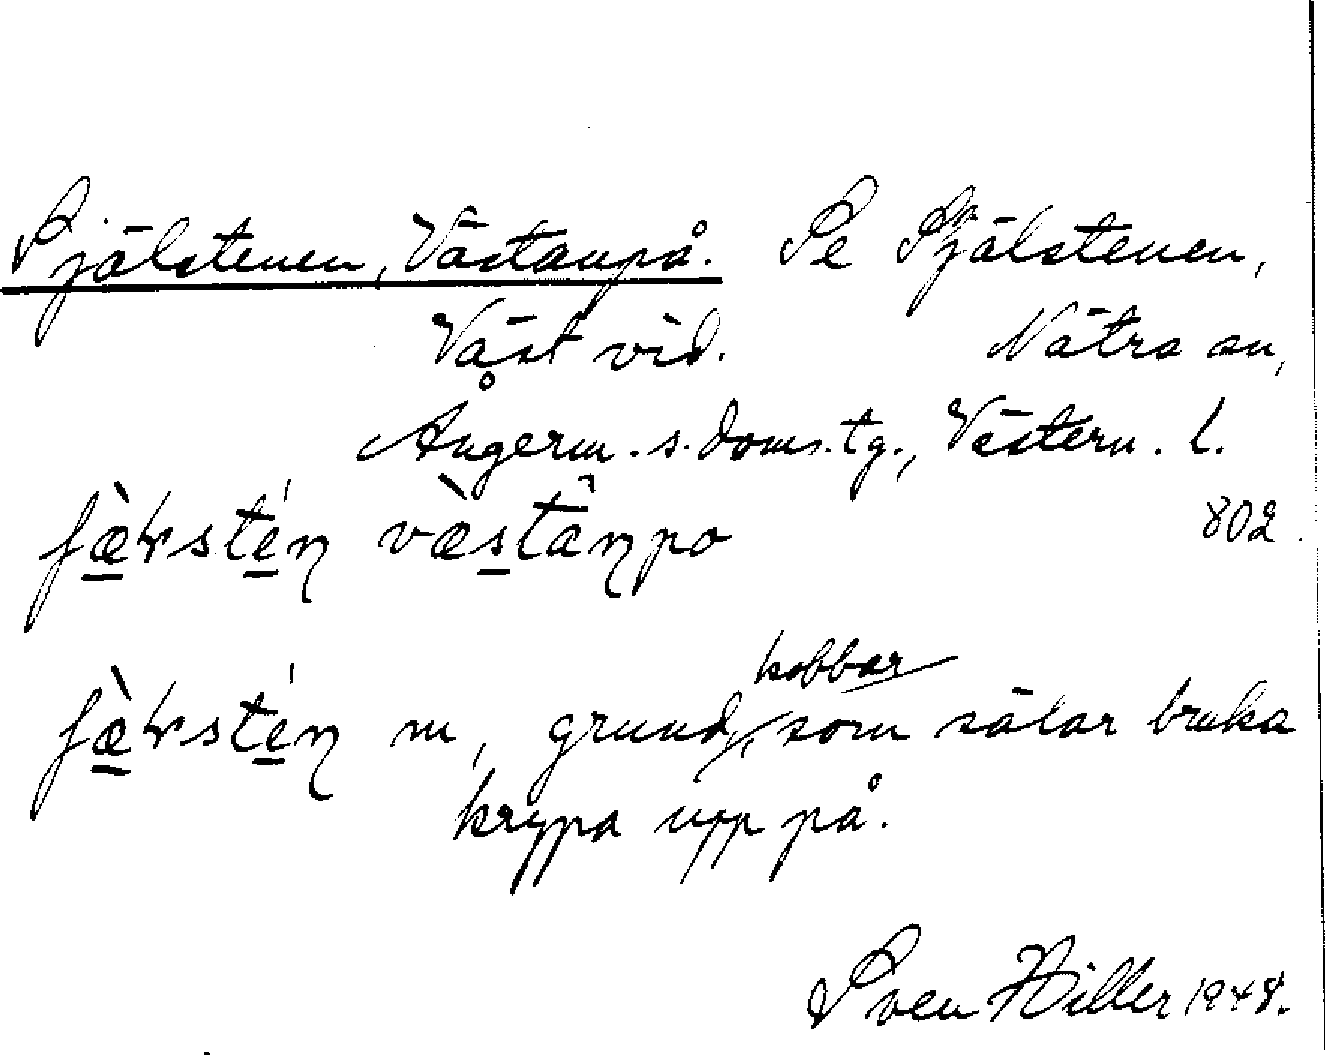 Själstenen, Västanpå. Se Själstenen,
Väst vid. Nätra sn,
Ångerm. s. doms. tg., Västern. l.
802.
ʃæ̀ɽstén væ̀stânpo
ʃæ̀ɽstén m, grund, kobbar som sälar bruka
krypa upp på.
Sven Hiller 1948.